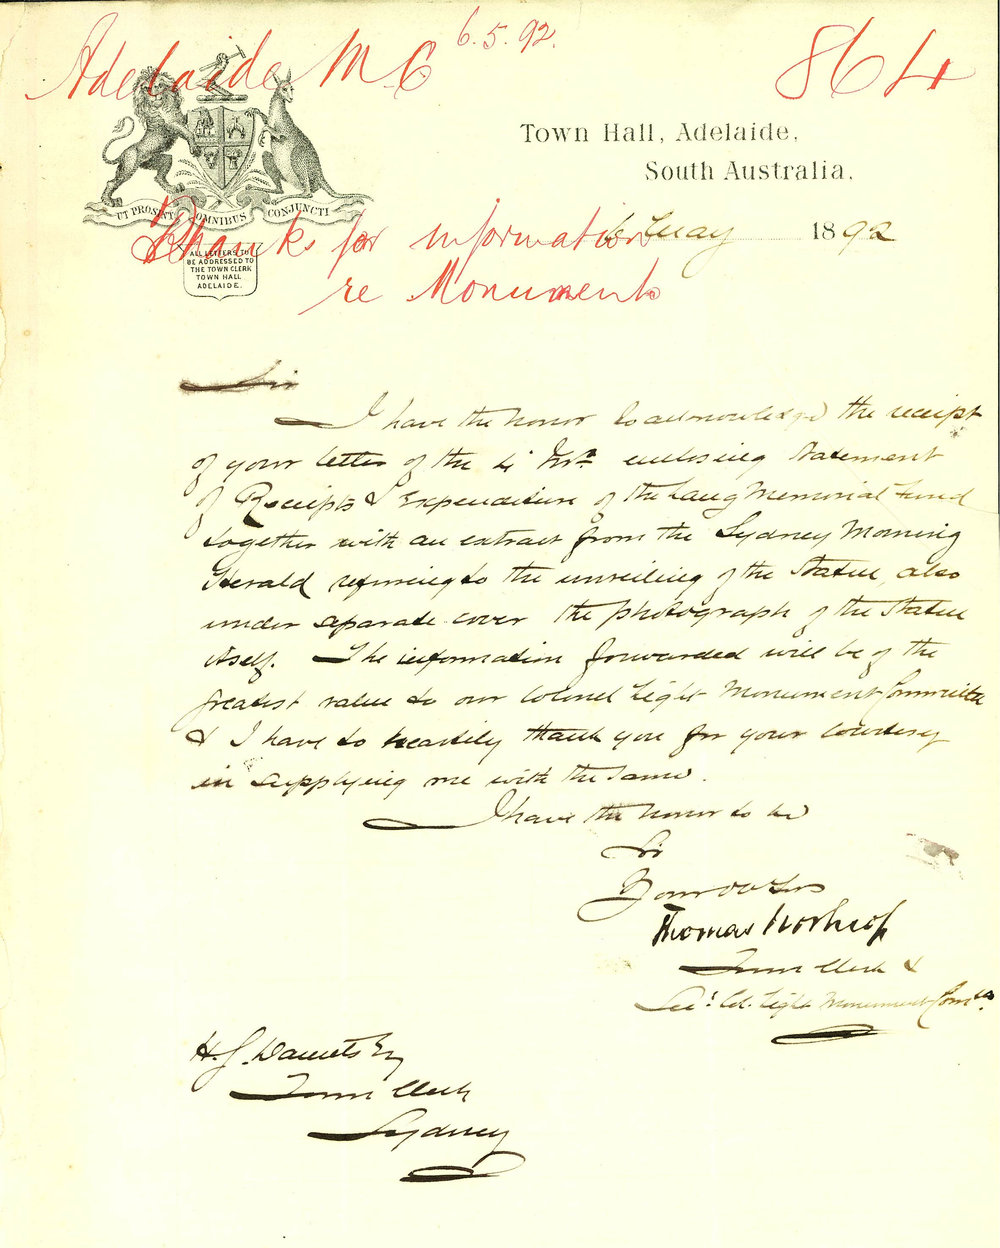 Adelaide M.C 6.5.92. 864
Town Hall, Adelaide,
South Australia.
UT PROSINT OMNIBUS CONJUNCTI
Thanks for information
6 May 1892
ALL LETTERS TO
BE ADDRESSED TO
THE TOWN CLERK
TOWN HALL
ADELAIDE.
re Monuments
Sir
I have the honor to acknowledge the receipt
of your letter of the 4th Inst. enclosing Statement
of Receipts & Expenditure of the Lang Memorial Fund
together with an extract from the Sydney Morning
Herald referring to the unveiling of the Statue, also
under separate cover the photograph of the Statue
itself. The information forwarded will be of the
greatest value to our Colonel Light Monument Committee
& I have to heartily thank you for your courtesy
in supplying me with the same.
I have the honor to be
Sir
Your ob Ser
Thomas Worsnop
Town Clerk &
Sec: Col. Light Monument Comtee.
H. J. Daniels Esq
Town Clerk
Sydney